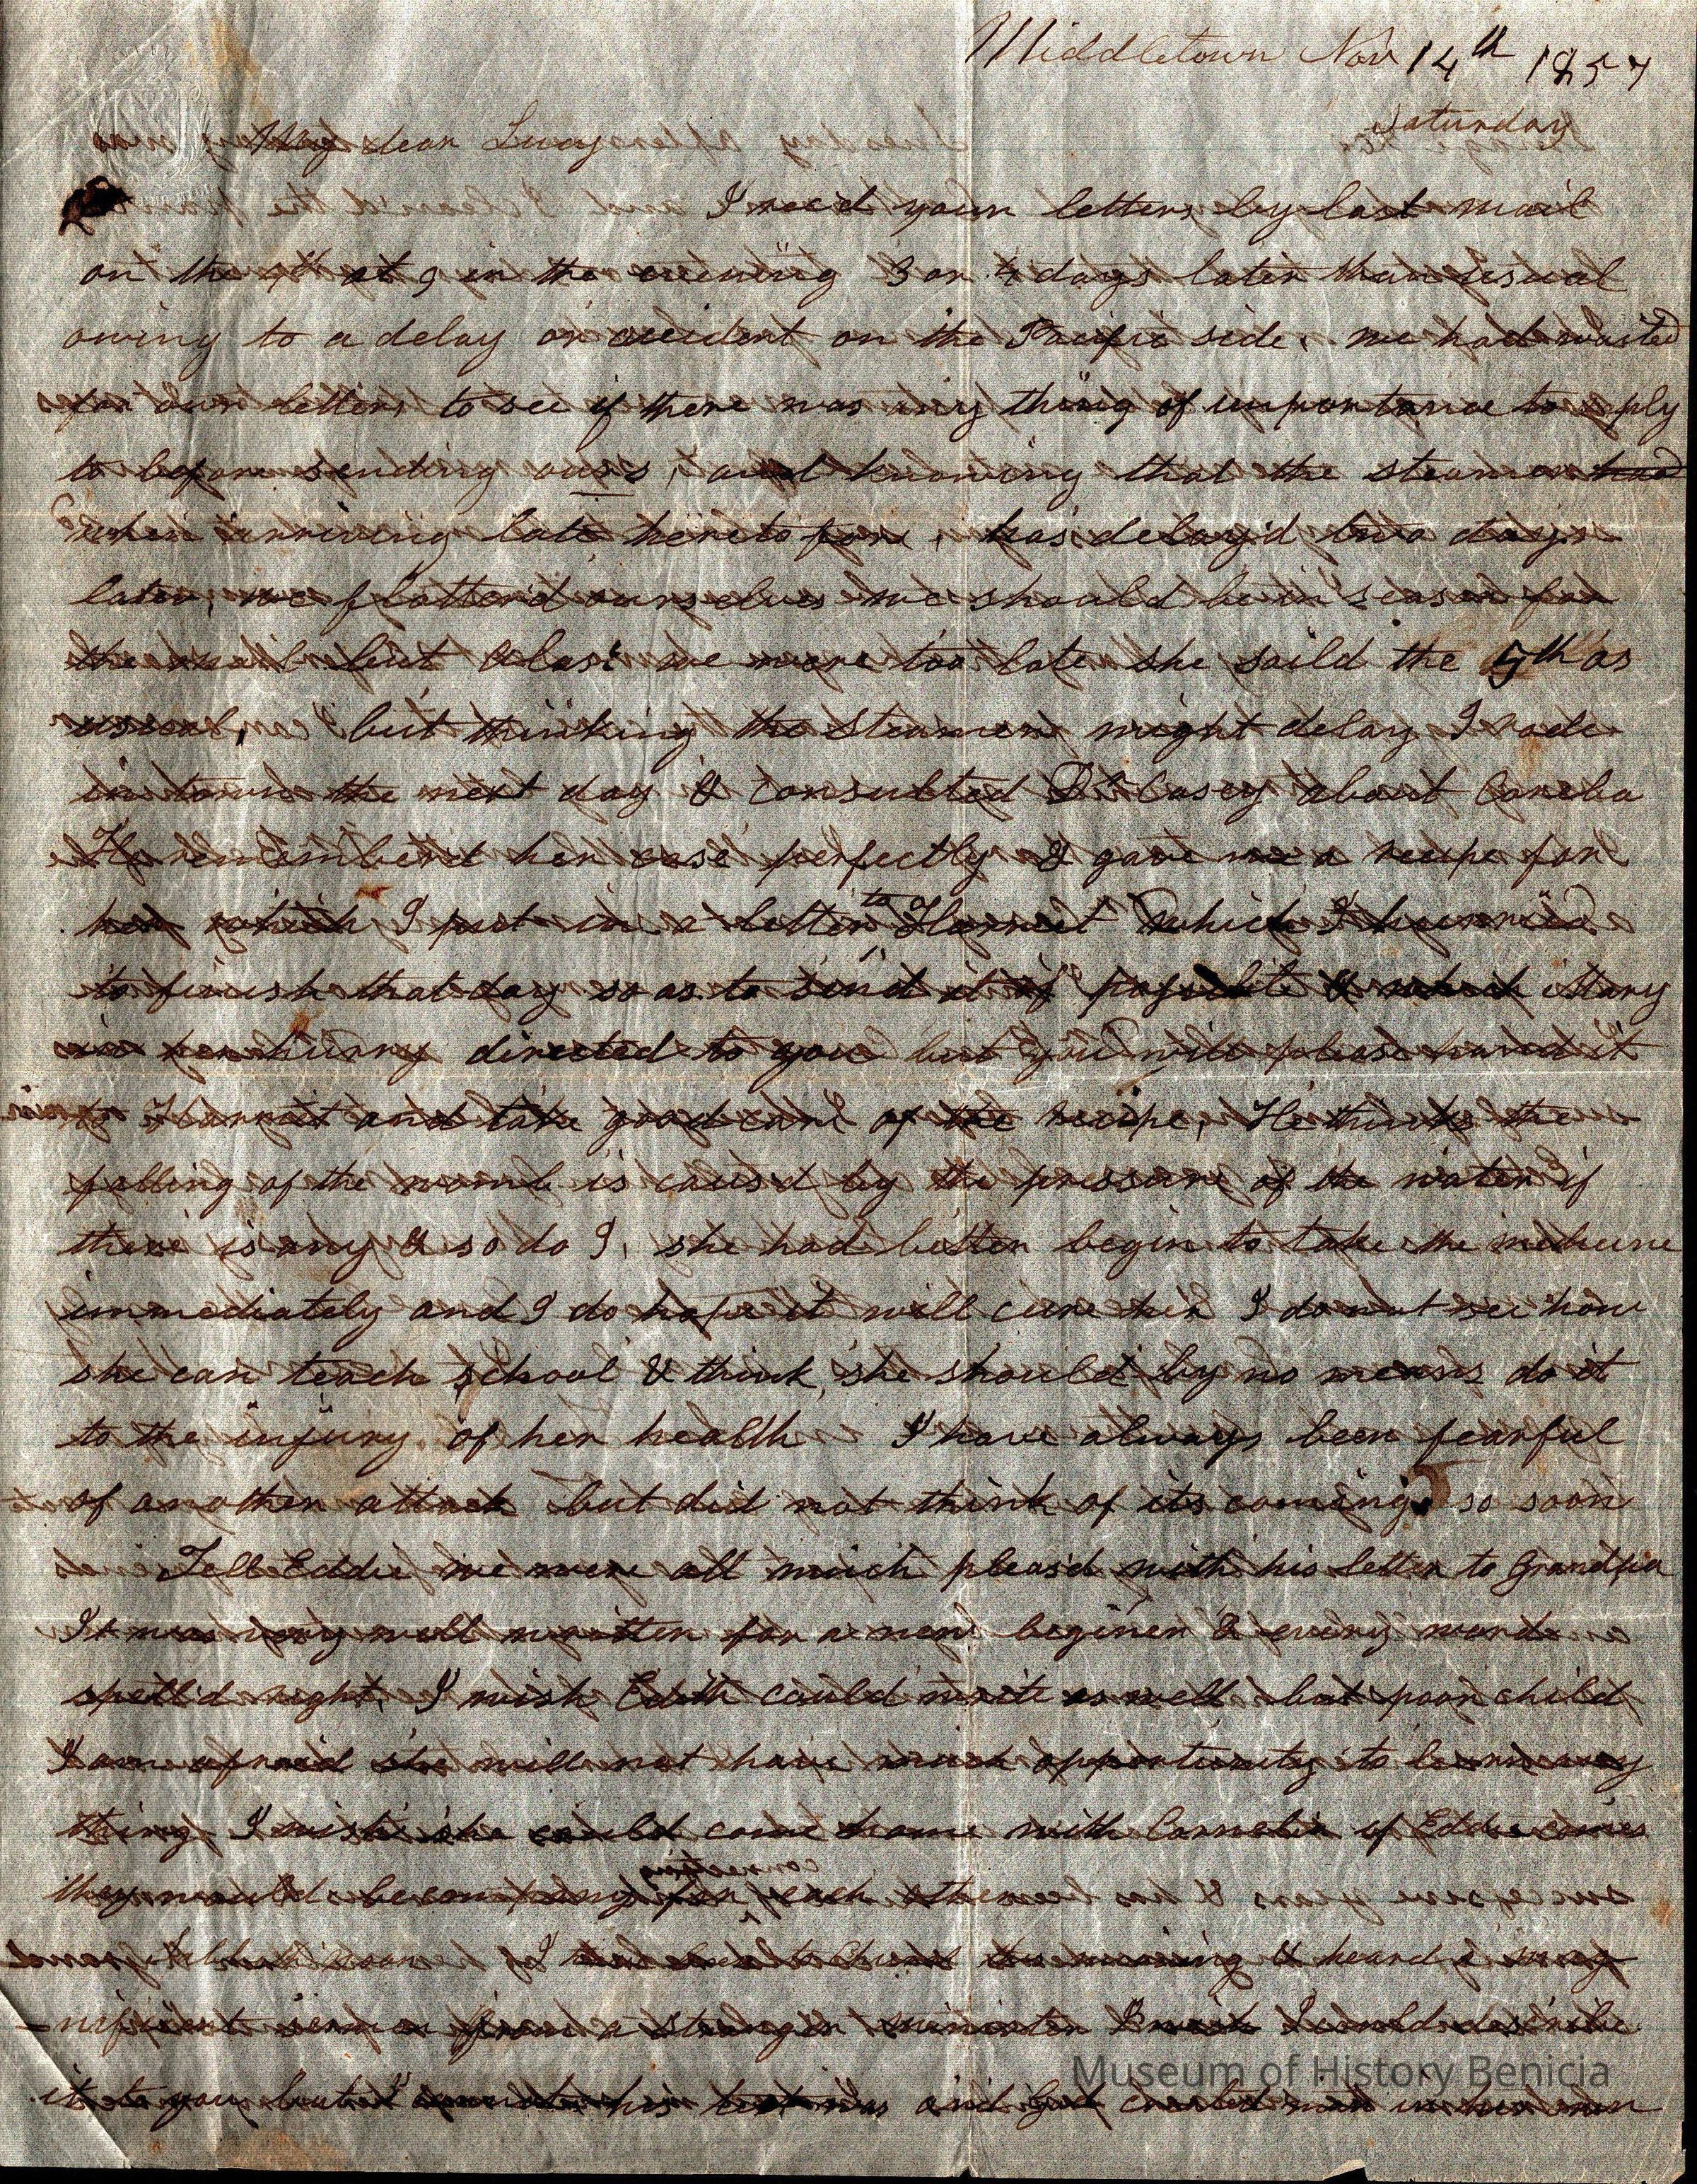 Middletown Nov 14th 1857
Saturday
My dear Lucy
I recd your letters by last mail
on the at 9 in the evening 3 or 4 days later than usual
owing to a delay or accident on the Pacific side, we had waited
for our letters to see if there was any thing of importance to reply
to before sending ours, and knowing that the steamer had
when arriving late heretofore, has delay'd two days
later, we flatter'd ourselves we should be in season for
the mail but alas! we were too late she saild the 5th as
usual, but thinking the steamer might delay I rode
in town the next day & consulted Dr Casey about
He rememberd her case perfectly & gave me a recipe for
her which I put in a letter to Harriet which I hurried
to finish that day so as to send it if & which Mary
in her hurry directed to you but you will please hand it
to Harriet and take good care of the recipe, He thinks the
falling of the womb is causd by the pressure of the water if
there is any & so do I, she had better begin to take the medicine
immediately and I do hope it will cure her I do not see how
she can teach school & think she should by no means do it
to the injury of her health I have always been fearful
of another attack but did not think of its coming so soon
Tell Eddie we were all much pleasd with his letter to Grandpa
It was very well written for a new beginer & every word
spell'd right, I wish Edith could write as well but poor child
I am afraid she will not have much opportunity to learn any
thing I wish she could come home with Cornelia if Eddie comes
they would be company for each other
I to Church this morning & heard a mag
nificent sermon from a stranger minister I wish I could describe
it to you but his text was and God created man in his own
Museum of History Benicia